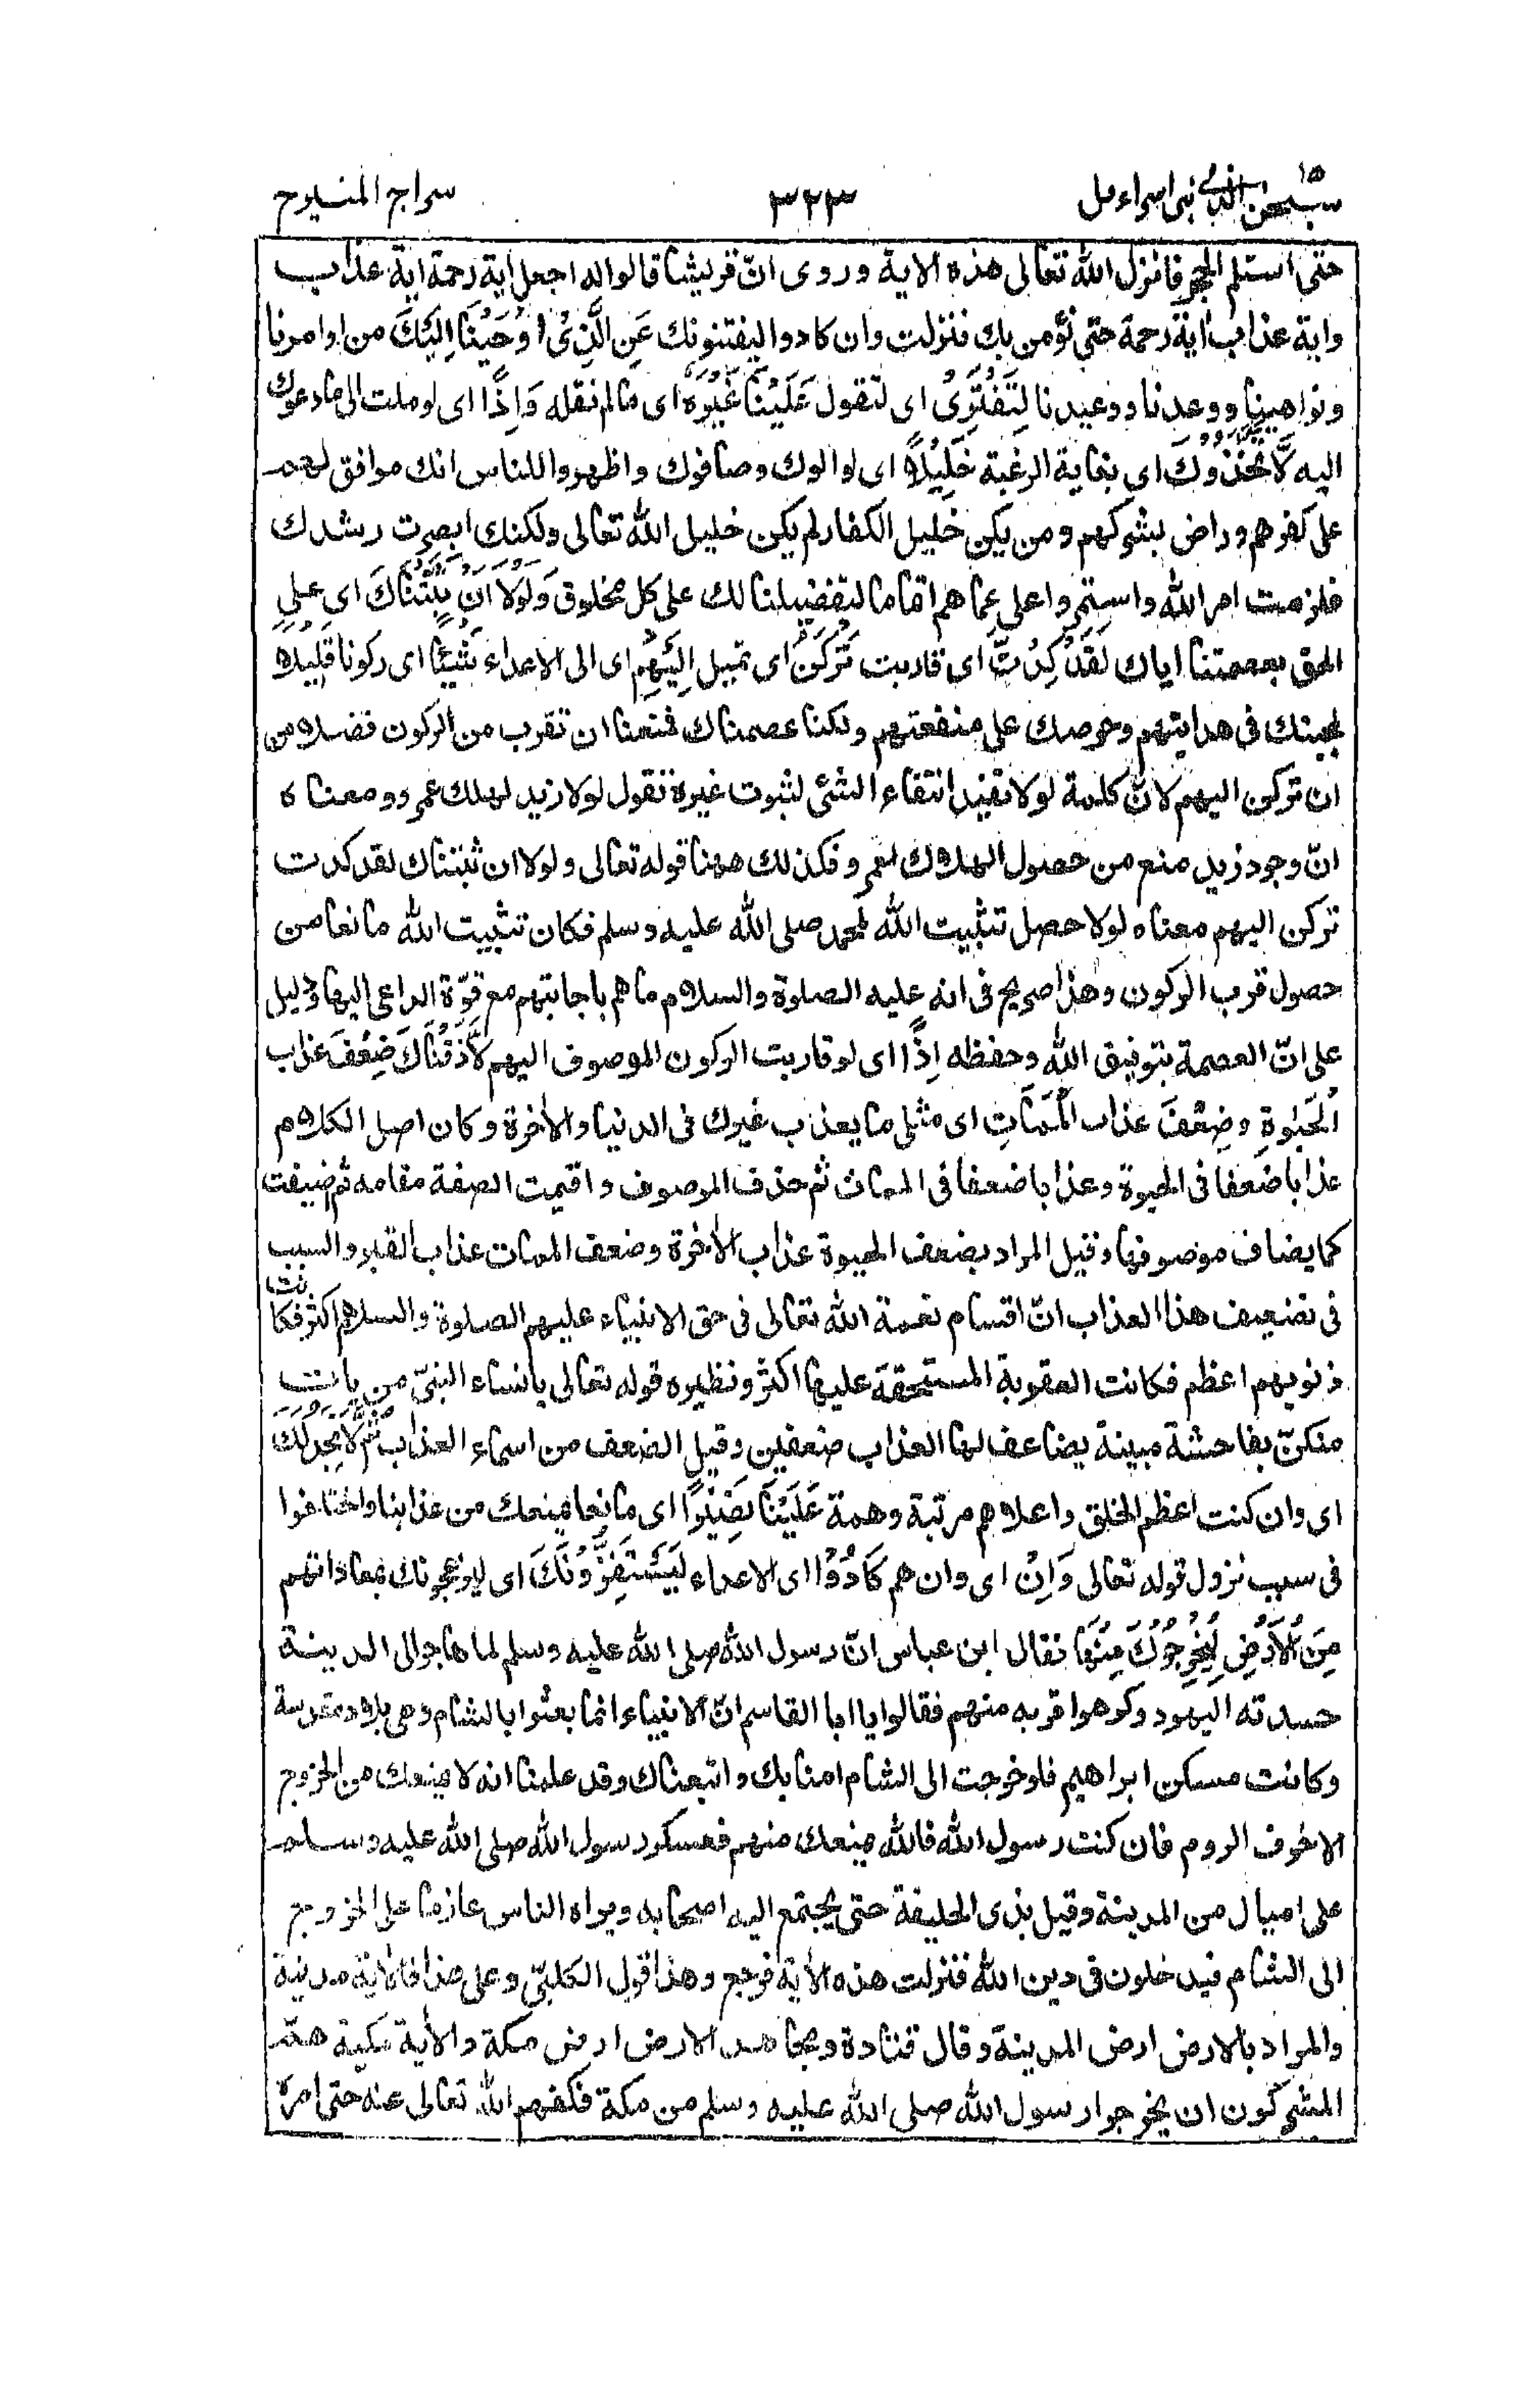 ١٥ سبحن الذى بنى اسراءيل ٣٢٣ سراج المنير ج
حتى استلم الحجر فانزل الله تعالى هذه الاية وروى انّ قريشا قالوا له اجعل اية رحمة اية عذاب
واية عذاب اية رحمة حتى نؤمن بك فنزلت وان كادوا ليفتنونك عَنِ الَّذِىْ اَوْحَيْنَا اِلَيْكَ من اوامرنا
ونواهينا ووعدنا ووعيدنا لِتَفْتَرِىَ اى لتقول عَلَيْنَا غَيْرَهُ اى مالم نقله وَاِذًا اى لو ملت الى ما دعوك
اليه لَّاتَّخَذُوْكَ اى بغاية الرغبة خَلِيْلًا اى لوالوك وصافوك واظهروا للناس انك موافق لهم
على كفرهم وراض بشركهم ومن يكن خليل الكفار لم يكن خليل الله تعالى ولكنك ابصرت رشدك
فلزمت امر الله واستمروا على عماهم اتماما لتفضيلنا لك على كل مخلوق وَلَوْلَا اَنْ ثَبَّتْنَاكَ اى على
الحق بعصمتنا اياك لَقَدْ كِدْتَّ اى قاربت تَرْكَنُ اى تميل اِلَيْهِمْ اى الى الاعداء شَيْئًا اى ركونا قَلِيْلًا
لمحبتك فى هدايتهم وحرصك على منفعتهم ولكنا عصمناك فمنعنا ان تقرب من الركون فضلا من
ان تركن اليهم لانّ كلمة لولا تفيد انتفاء الشئ لثبوت غيره تقول لولا زيد لهلك عمرو ومعناه
انّ وجود زيد منع من حصول الهلاك لعمرو فكذلك ههنا قوله تعالى ولولا ان ثبتناك لقد كدت
تركن اليهم معناه لولا حصل تثبيت الله لمحمد صلى الله عليه وسلم فكان تثبيت الله مانعا من
حصول قرب الركون وهذا صريح فى انه عليه الصلوة والسلام ما هم باجابتهم مع قوّة الداعى اليها ودليل
على انّ العصمة بتوفيق الله وحفظه اِذًا اى لو قاربت الركون الموصوف اليهم لَّاَذَقْنَاكَ ضِعْفَ عذاب
الْحَيٰوةِ وضِعْفَ عذاب الْمَمَاتِ اى مثلى ما يعذب غيرك فى الدنيا والاخرة وكان اصل الكلام
عذابا ضعفا فى الحيوة وعذابا ضعفا فى الممات ثم حذف الموصوف واقيمت الصفة مقامه ثم اضيفت
كما يضاف موصوفها وقيل المراد بضعف الحيوة عذاب الاخرة وضعف الممات عذاب القبر والسبب
فى تضعيف هذا العذاب انّ اقسام نعمة الله تعالى فى حق الانبياء عليهم الصلوة والسلام اكثر فكانت
ذنوبهم اعظم فكانت العقوبة المستحقة عليها اكثر ونظيره قوله تعالى يا نساء النبىّ من يات
منكنّ بفاحشة مبينة يضاعف لها العذاب ضعفين وقيل الضعف من اسماء العذاب ثُمَّ لَا تَجِدُ لَكَ
اى وان كنت اعظم الخلق واعلاهم مرتبة وهمة عَلَيْنَا نَصِيْرًا اى مانعا يمنعك من عذابنا واختلفوا
فى سبب نزول قوله تعالى وَاِنْ اى وان هم كَادُوْا اى الاعداء لَيَسْتَفِزُّوْنَكَ اى ليزعجونك بمعاداتهم
مِنَ الْاَرْضِ لِيُخْرِجُوْكَ مِنْهَا فقال ابن عباس انّ رسول الله صلى الله عليه وسلم لما هاجر الى المدينة
حسدته اليهود وكرهوا قربه منهم فقالوا يا ابا القاسم انّ الانبياء انما بعثوا بالشام وهى بلاد مقدسة
وكانت مسكن ابراهيم فلو خرجت الى الشام امنا بك واتبعناك وقد علمنا انه لا يمنعك من الخروج
الا خوف الروم فان كنت رسول الله فالله يمنعك منهم فعسكر رسول الله صلى الله عليه وسلم
على اميال من المدينة وقيل بذى الحليفة حتى يجتمع اليه اصحابه ويراه الناس عازما على الخروج
الى الشام فيدخلون فى دين الله فنزلت هذه الاية فرجع وهذا قول الكلبىّ وعلى هذا فالاية مدنية
والمراد بالارض ارض المدينة وقال قتادة ومجاهد الارض ارض مكة والاية مكية همّ
المشركون ان يخرجوا رسول الله صلى الله عليه وسلم من مكة فكفهم الله تعالى عنه حتى امره